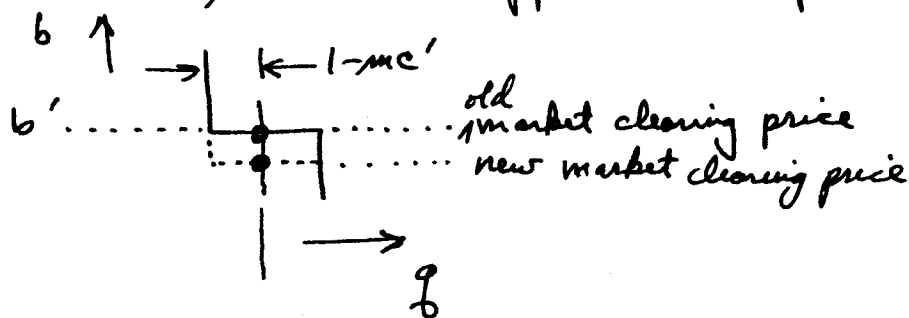 b
1-mc'
b'
old
market clearing price
new market clearing price
q